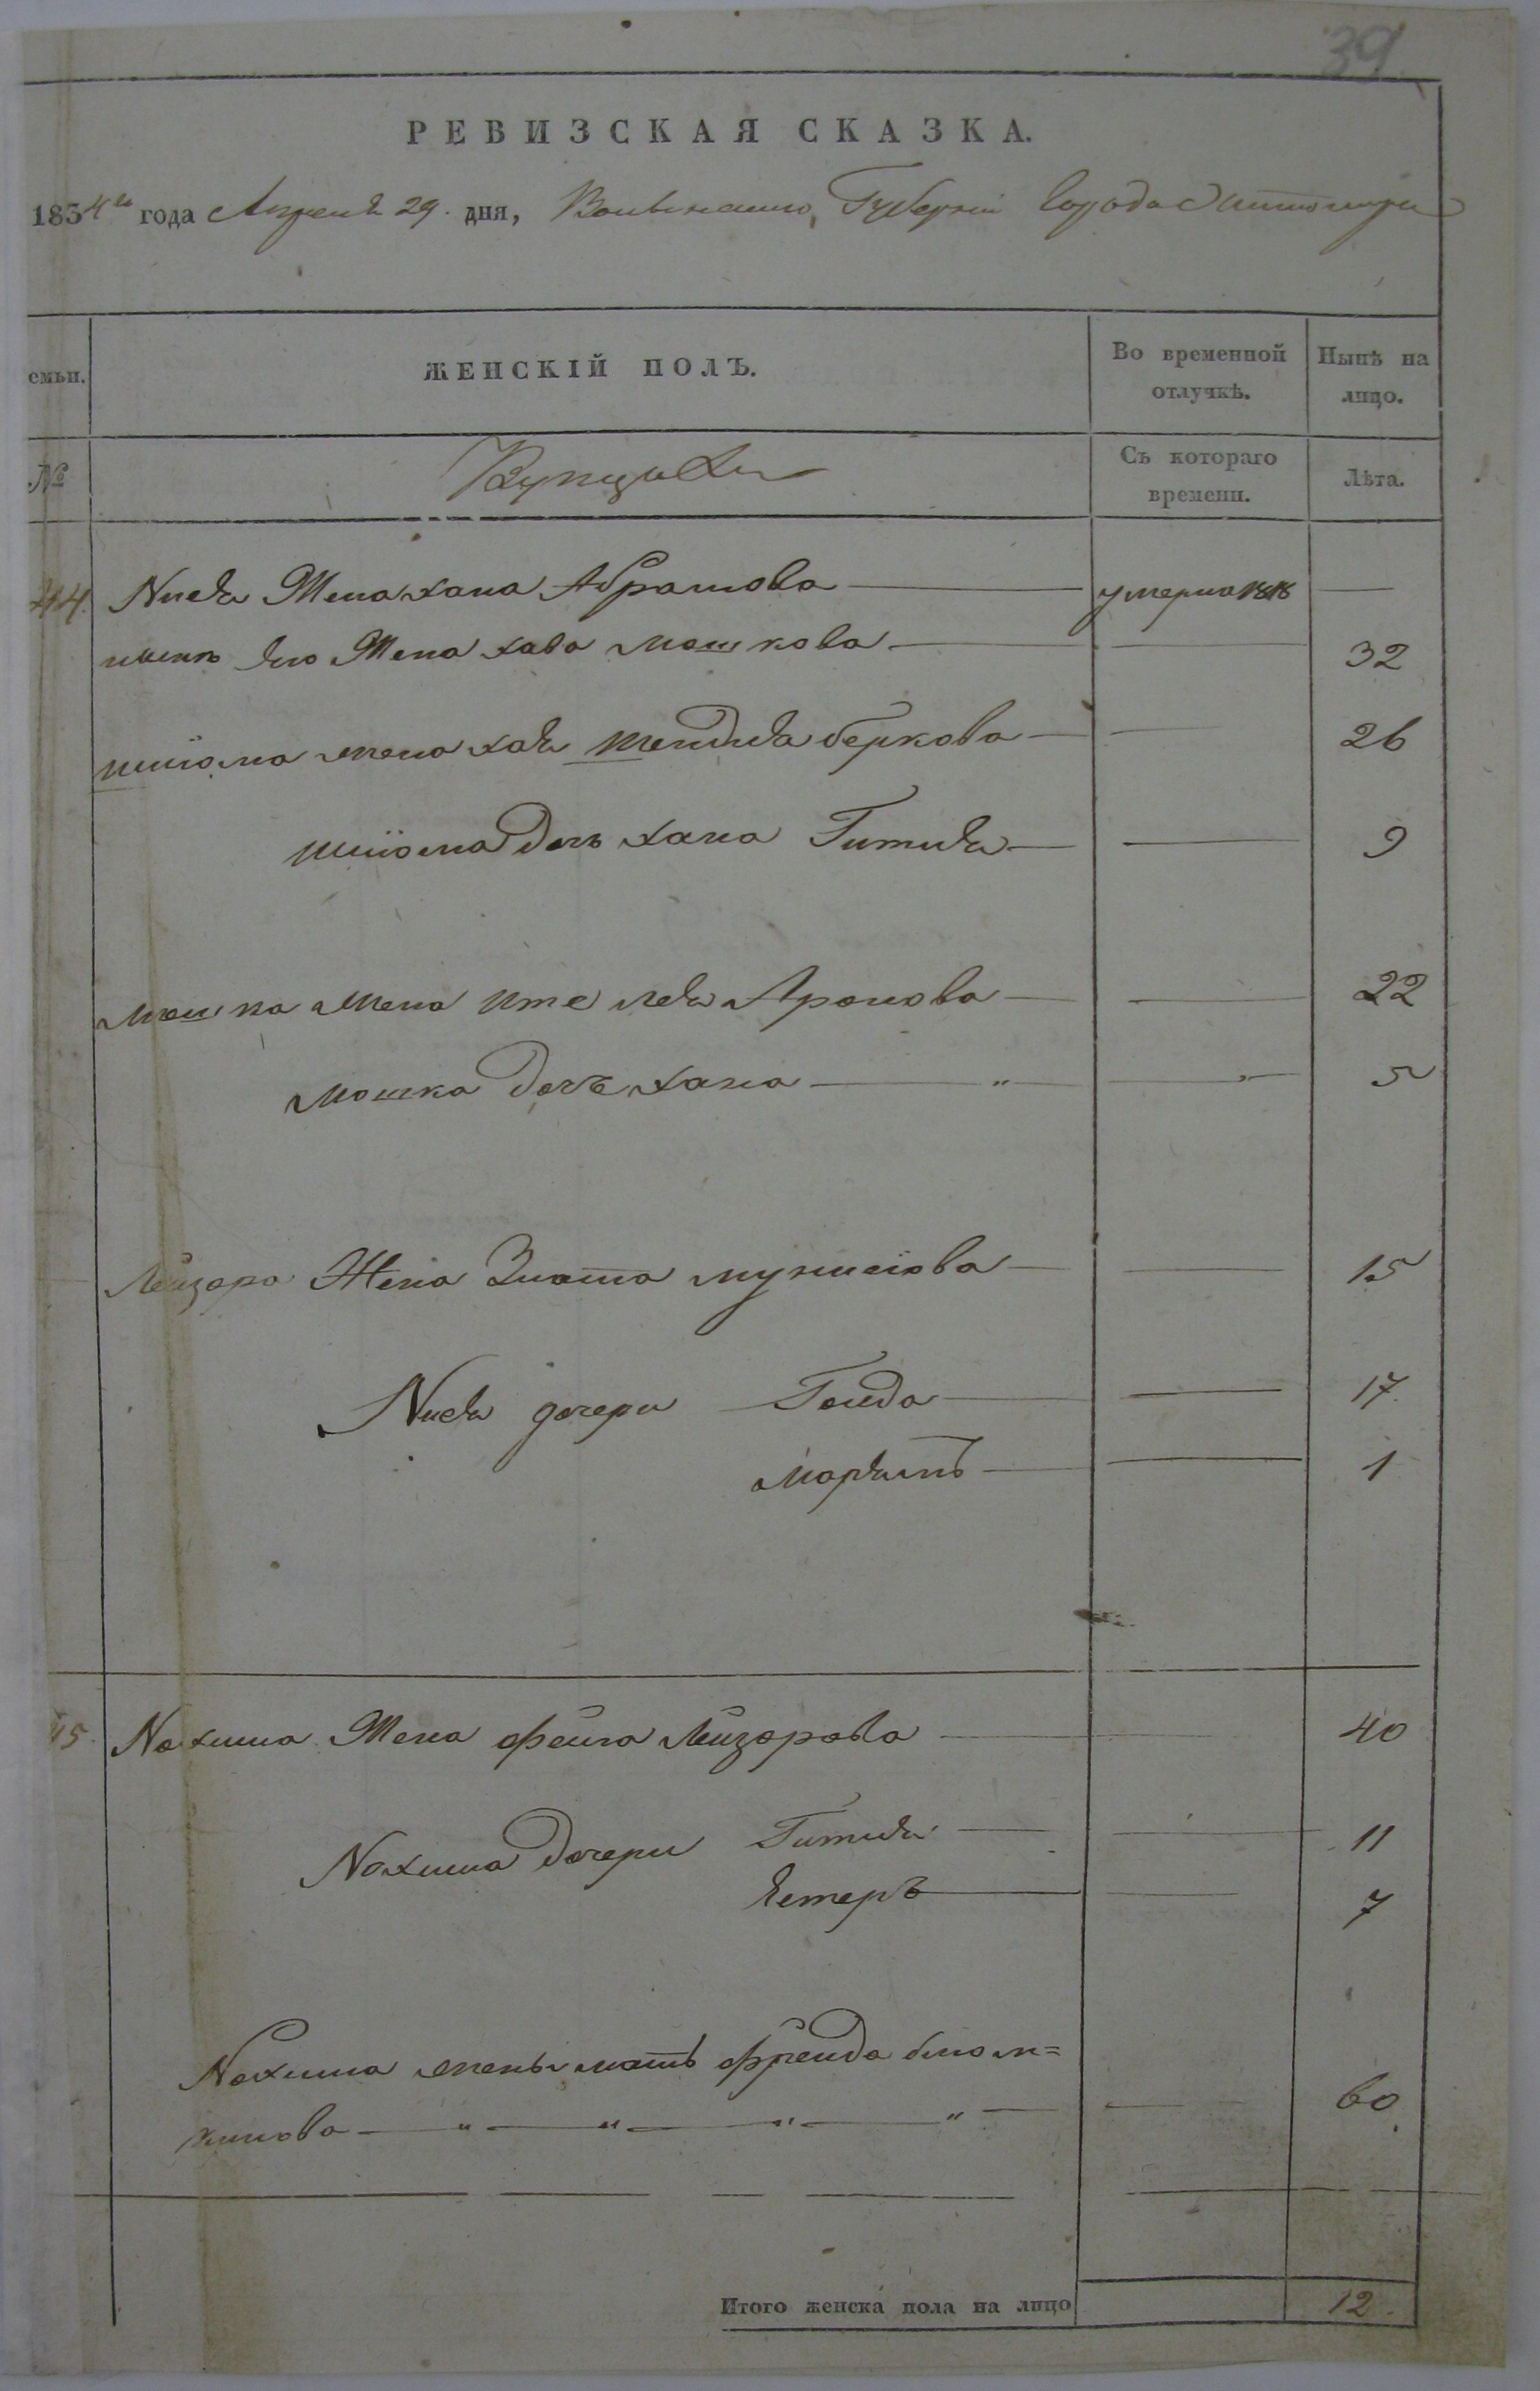 39
РЕВИЗСКАЯ СКАЗКА.
1834го года Апреля 29. дня, Волынской Губерніи Города Житомира
семьи. ЖЕНСКІЙ ПОЛЪ. Во временной отлучкѣ. Нынѣ на лицо.
№ Съ котораго времени. Лѣта.
44. Жена хана Абрамова — умерла 1818 —
его Жена хава мошкова — — 32
шліома жена хая шендля беркова — — 26
шліома дочь хана Гитля — — 9
мошка жена Аронова — — 22
мошка дочь хана — " — — " — 5
Лейзора Жена Злата — — 15
дочери Голда — — 17
марямъ — — 1
45. Нохима Жена фейга Лейзорова — — 40
Нохима дочери Гитля — — 11
естеръ — — 7
Нохима жены мать фрейда
— " — " — " — " — — 60
Итого женска пола на лицо 12.